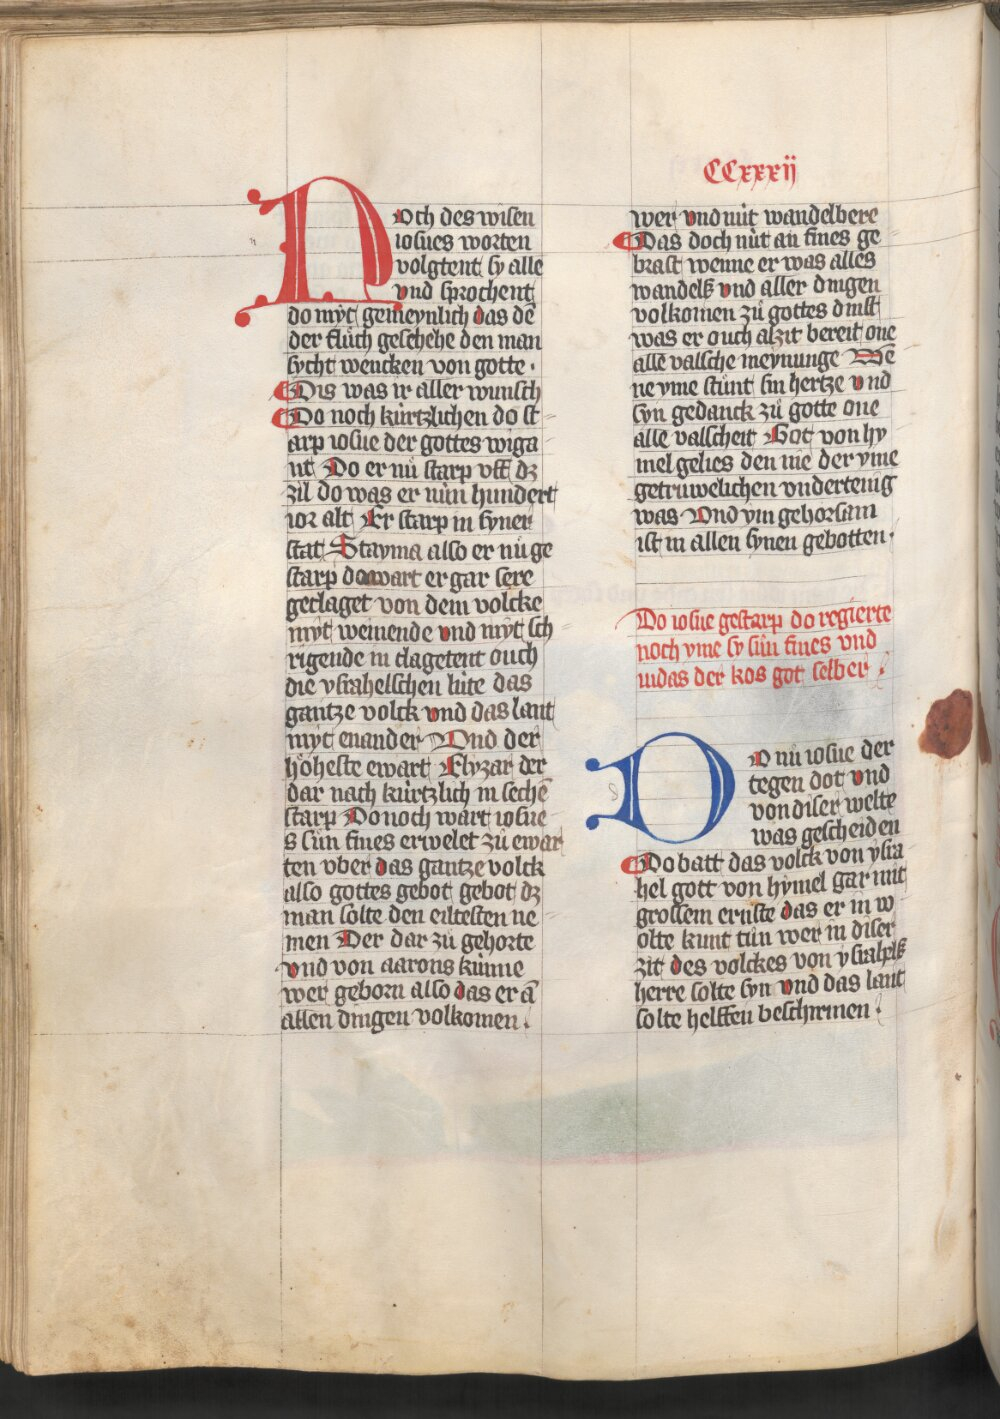 CCxxxij
Noch des wisen
iosues worten
volgtent sy alle
vnd sprochent
do myt gemeynlich das dē
der flůch geschehe den man
sycht wencken von gotte·
Dis was ir aller wunsch
Do noch kürtzlichen do st
arp iosue der gottes wiga
nt Do er nů starp vff dz
zil do was er nün hundert
ior alt Er starp in syner
stat Stayma also er nů ge
starp do wart er gar sere
geclaget von dem volcke
myt weinende vnd myt sch
rigende in clagetent ouch
die ysrahelschen lüte das
gantze volck vnd das lant
myt enander Vnd der
höheste ewart Elyzar der
dar nach kürtzlich in sechē
starp Do noch wart iosue
s sůn fines erwelet zů ewar
ten vber das gantze volck
also gottes gebot gebot dz
man solte den eiltesten ne
men Der dar zů gehorte
vnd von aarons künne
wer geborn also das er ā
allen dingen volkomen.
wer vnd nüt wandelbere
Das doch nüt an fines ge
brast wenne er was alles
wandels vnd aller dingen
volkomen zů gottes dinst
was er ouch alzit bereit one
alle valsche meynunge We
ne yme stůnt sin hertze vnd
syn gedanck zů gotte one
alle valscheit Got von hy
mel gelies den nie der yme
getruwelichen vndertenig
was Vnd ym gehorsam
ist in allen synen gebotten·
Do iosue gestarp do regierte
noch yme sy sůn fines vnd
iudas der kos got selber
Do nů iosue der
tegen dot vnd
von diser welte
was gescheiden
Do batt das volck von ysra
hel gott von hymel gar mit
grossem ernste das er in w
olte kunt tůn wer in diser
zit des volckes von ysrahels
herre solte syn vnd das lant
solte helffen beschirmen.